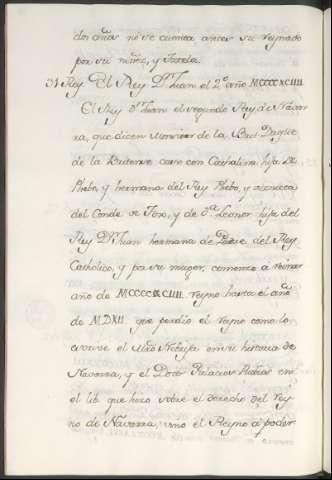 dos años no se cuenta antes su reynado
por su niñez, y Tutela.
34 Rey. El Rey Dn. Juan el 2º año MCCCCXCIIII.
El Rey Dn. Juan el segundo Rey de Navar
ra, que dicen Monsiur de la
de la caso con Cathalina hija de
Phebo, y hermana del Rey Phebo, y viznieta
del Conde de Fox, y de Dª. Leonor hija del
Rey Dn. Juan hermana de Padre del Rey
Catholico, y por su muger, comenzo á reinar
año de MCCCCXCIIII. reyno hasta el año
de MDXII. que perdio el reyno como lo
escrive el Mtro Nebrija en su historia de
Navarra, y el Dotor Palacios Rubios en
el lib. que hizo sobre el derecho del Rey
no de Navarra, vino el Reyno á poder